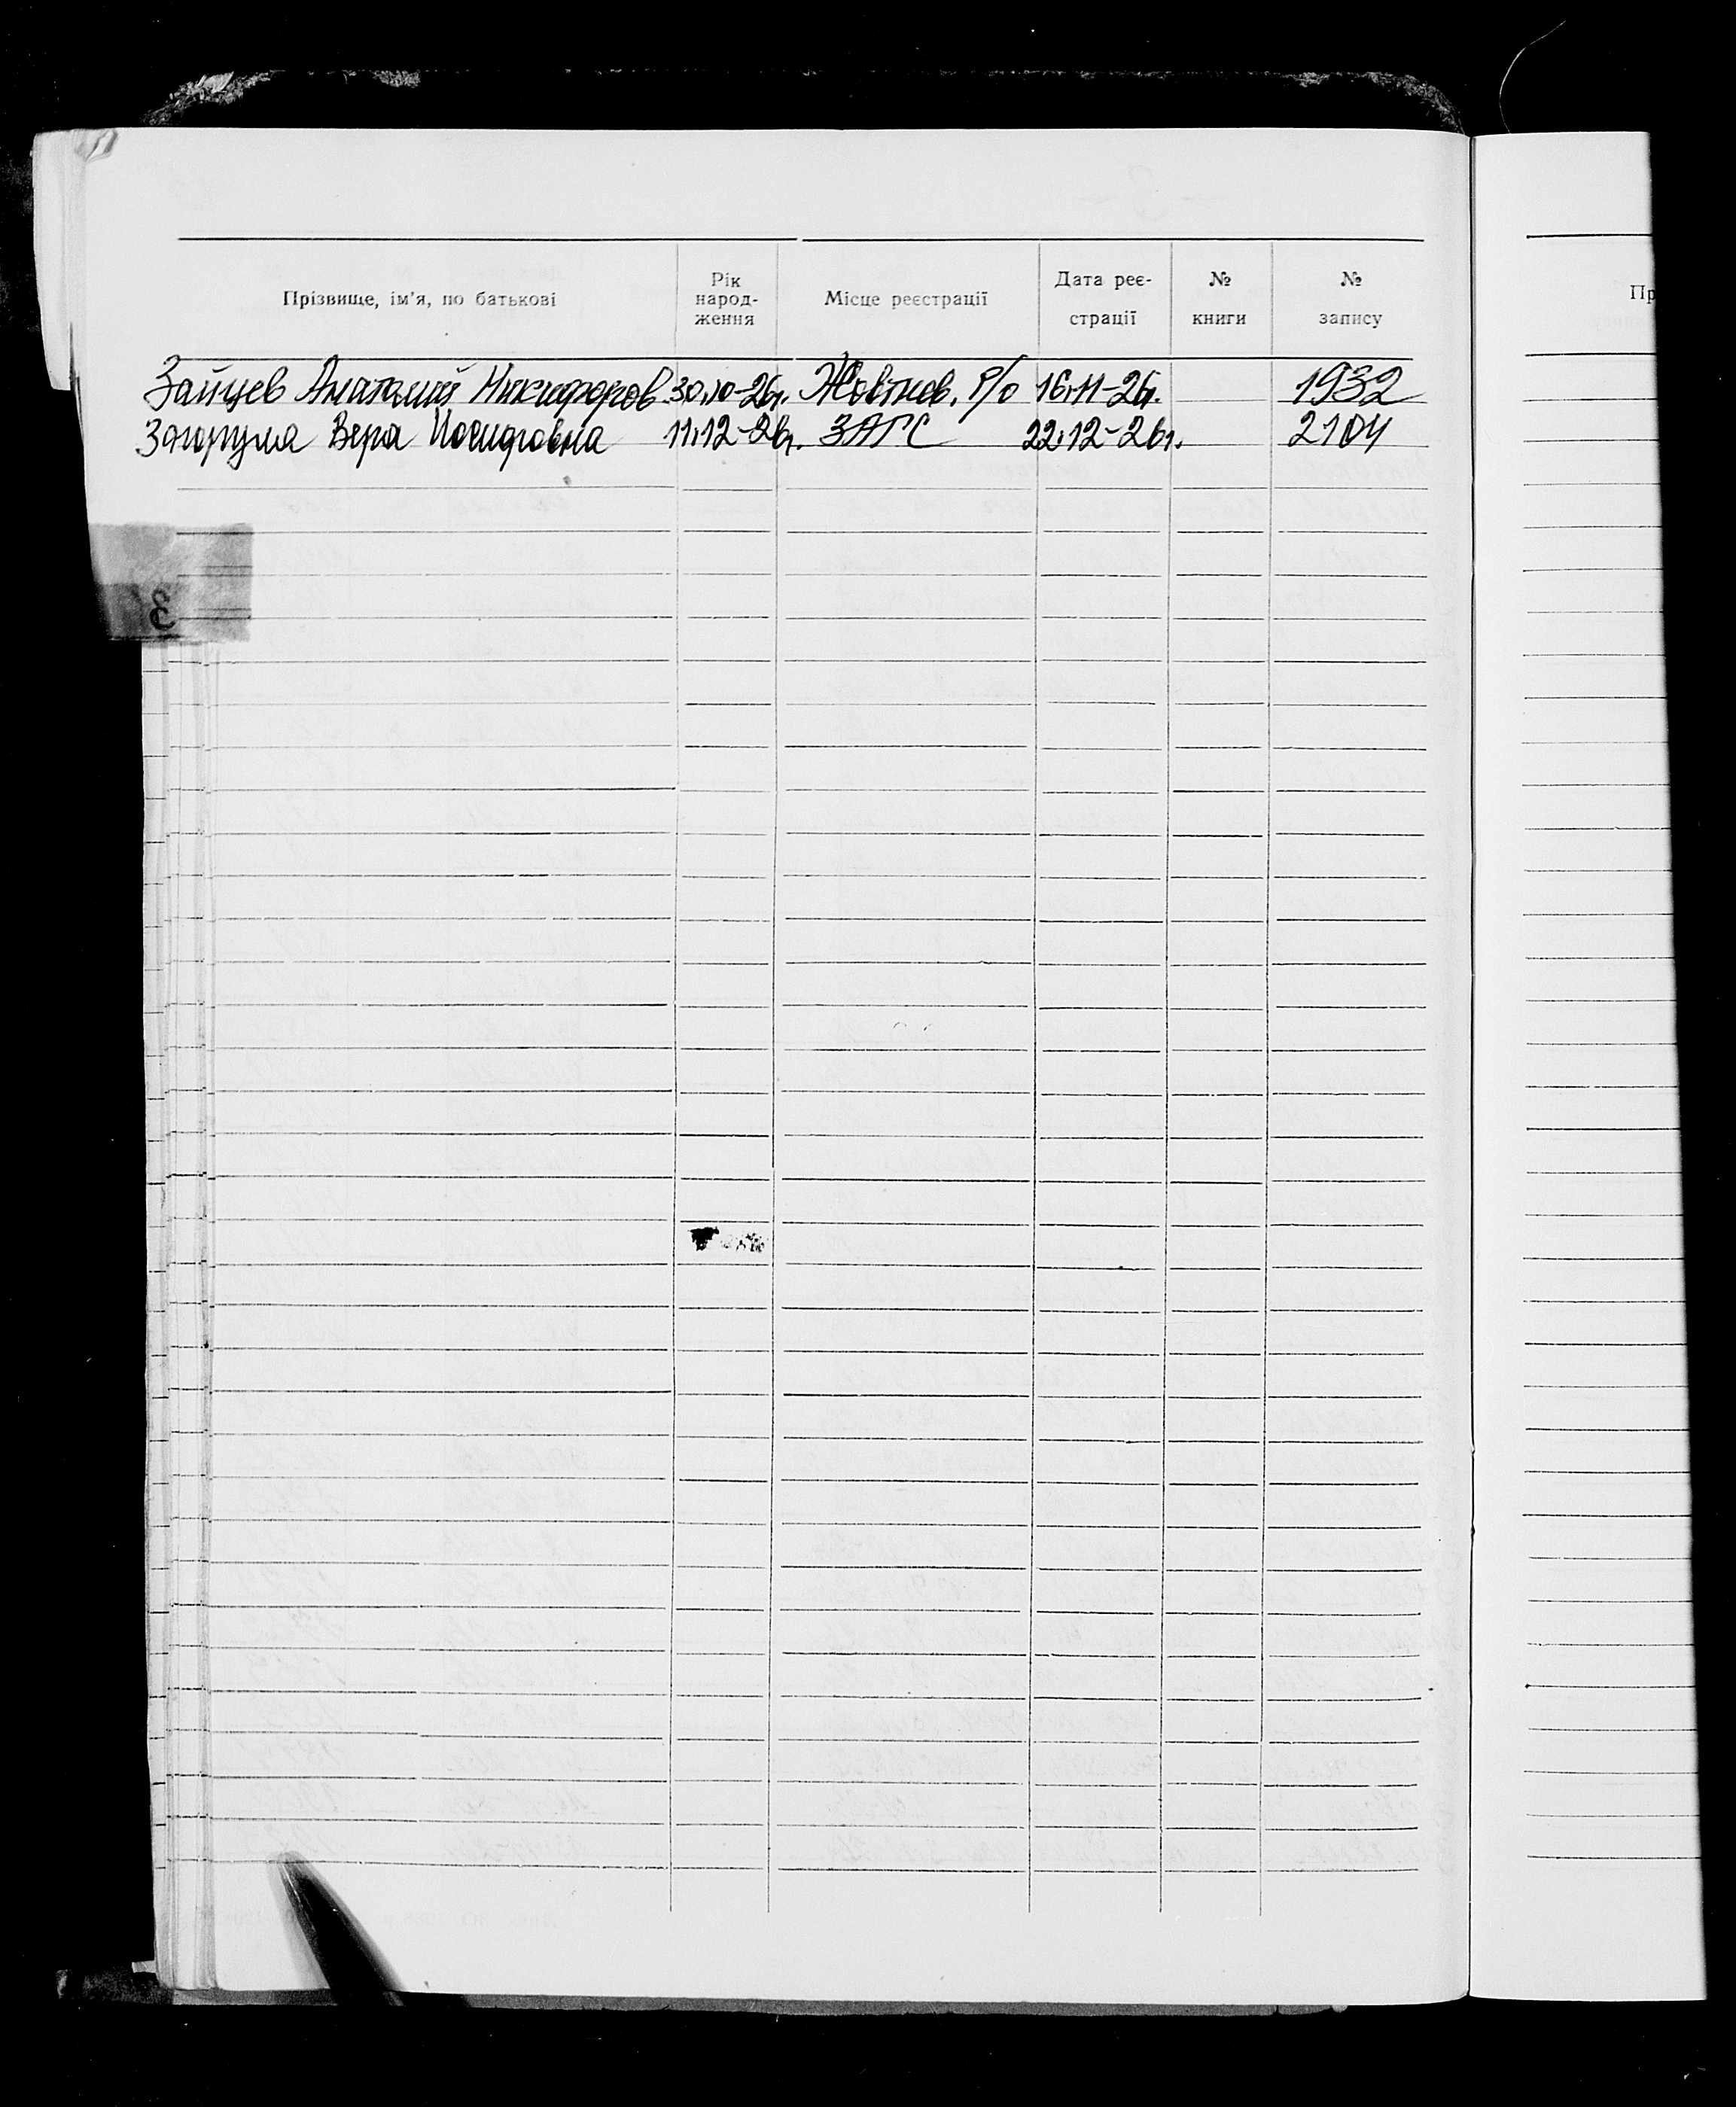 Прізвище, ім'я, по батькові Рік народ- ження Місце реєстрації Дата реє- страції № книги № запису Пр
Зайцев Анатолий Никифоров. 30.10-26г. Жовтнев. Р/о 16.11-26г. 1932
Вера Иосифовна 11.12-26г. ЗАГС 22.12-26г. 2104
З